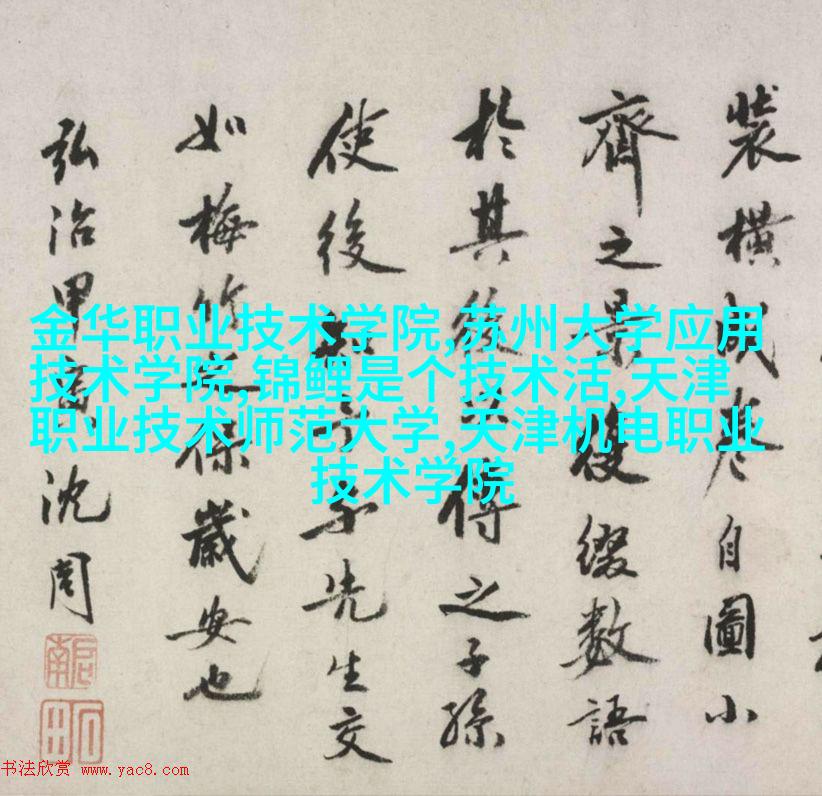 裝横成卷自圖小
齊之景復綴數語
於其後得之子孫
使後先生交
如梅竹保歲安也
弘治甲寅沈周
啓南
石田
金华职业技术学院,苏州大学应用
技术学院,锦鲤是个技术活,天津
职业技术师范大学,天津机电职业
技术学院
书法欣赏 www.yac8.com